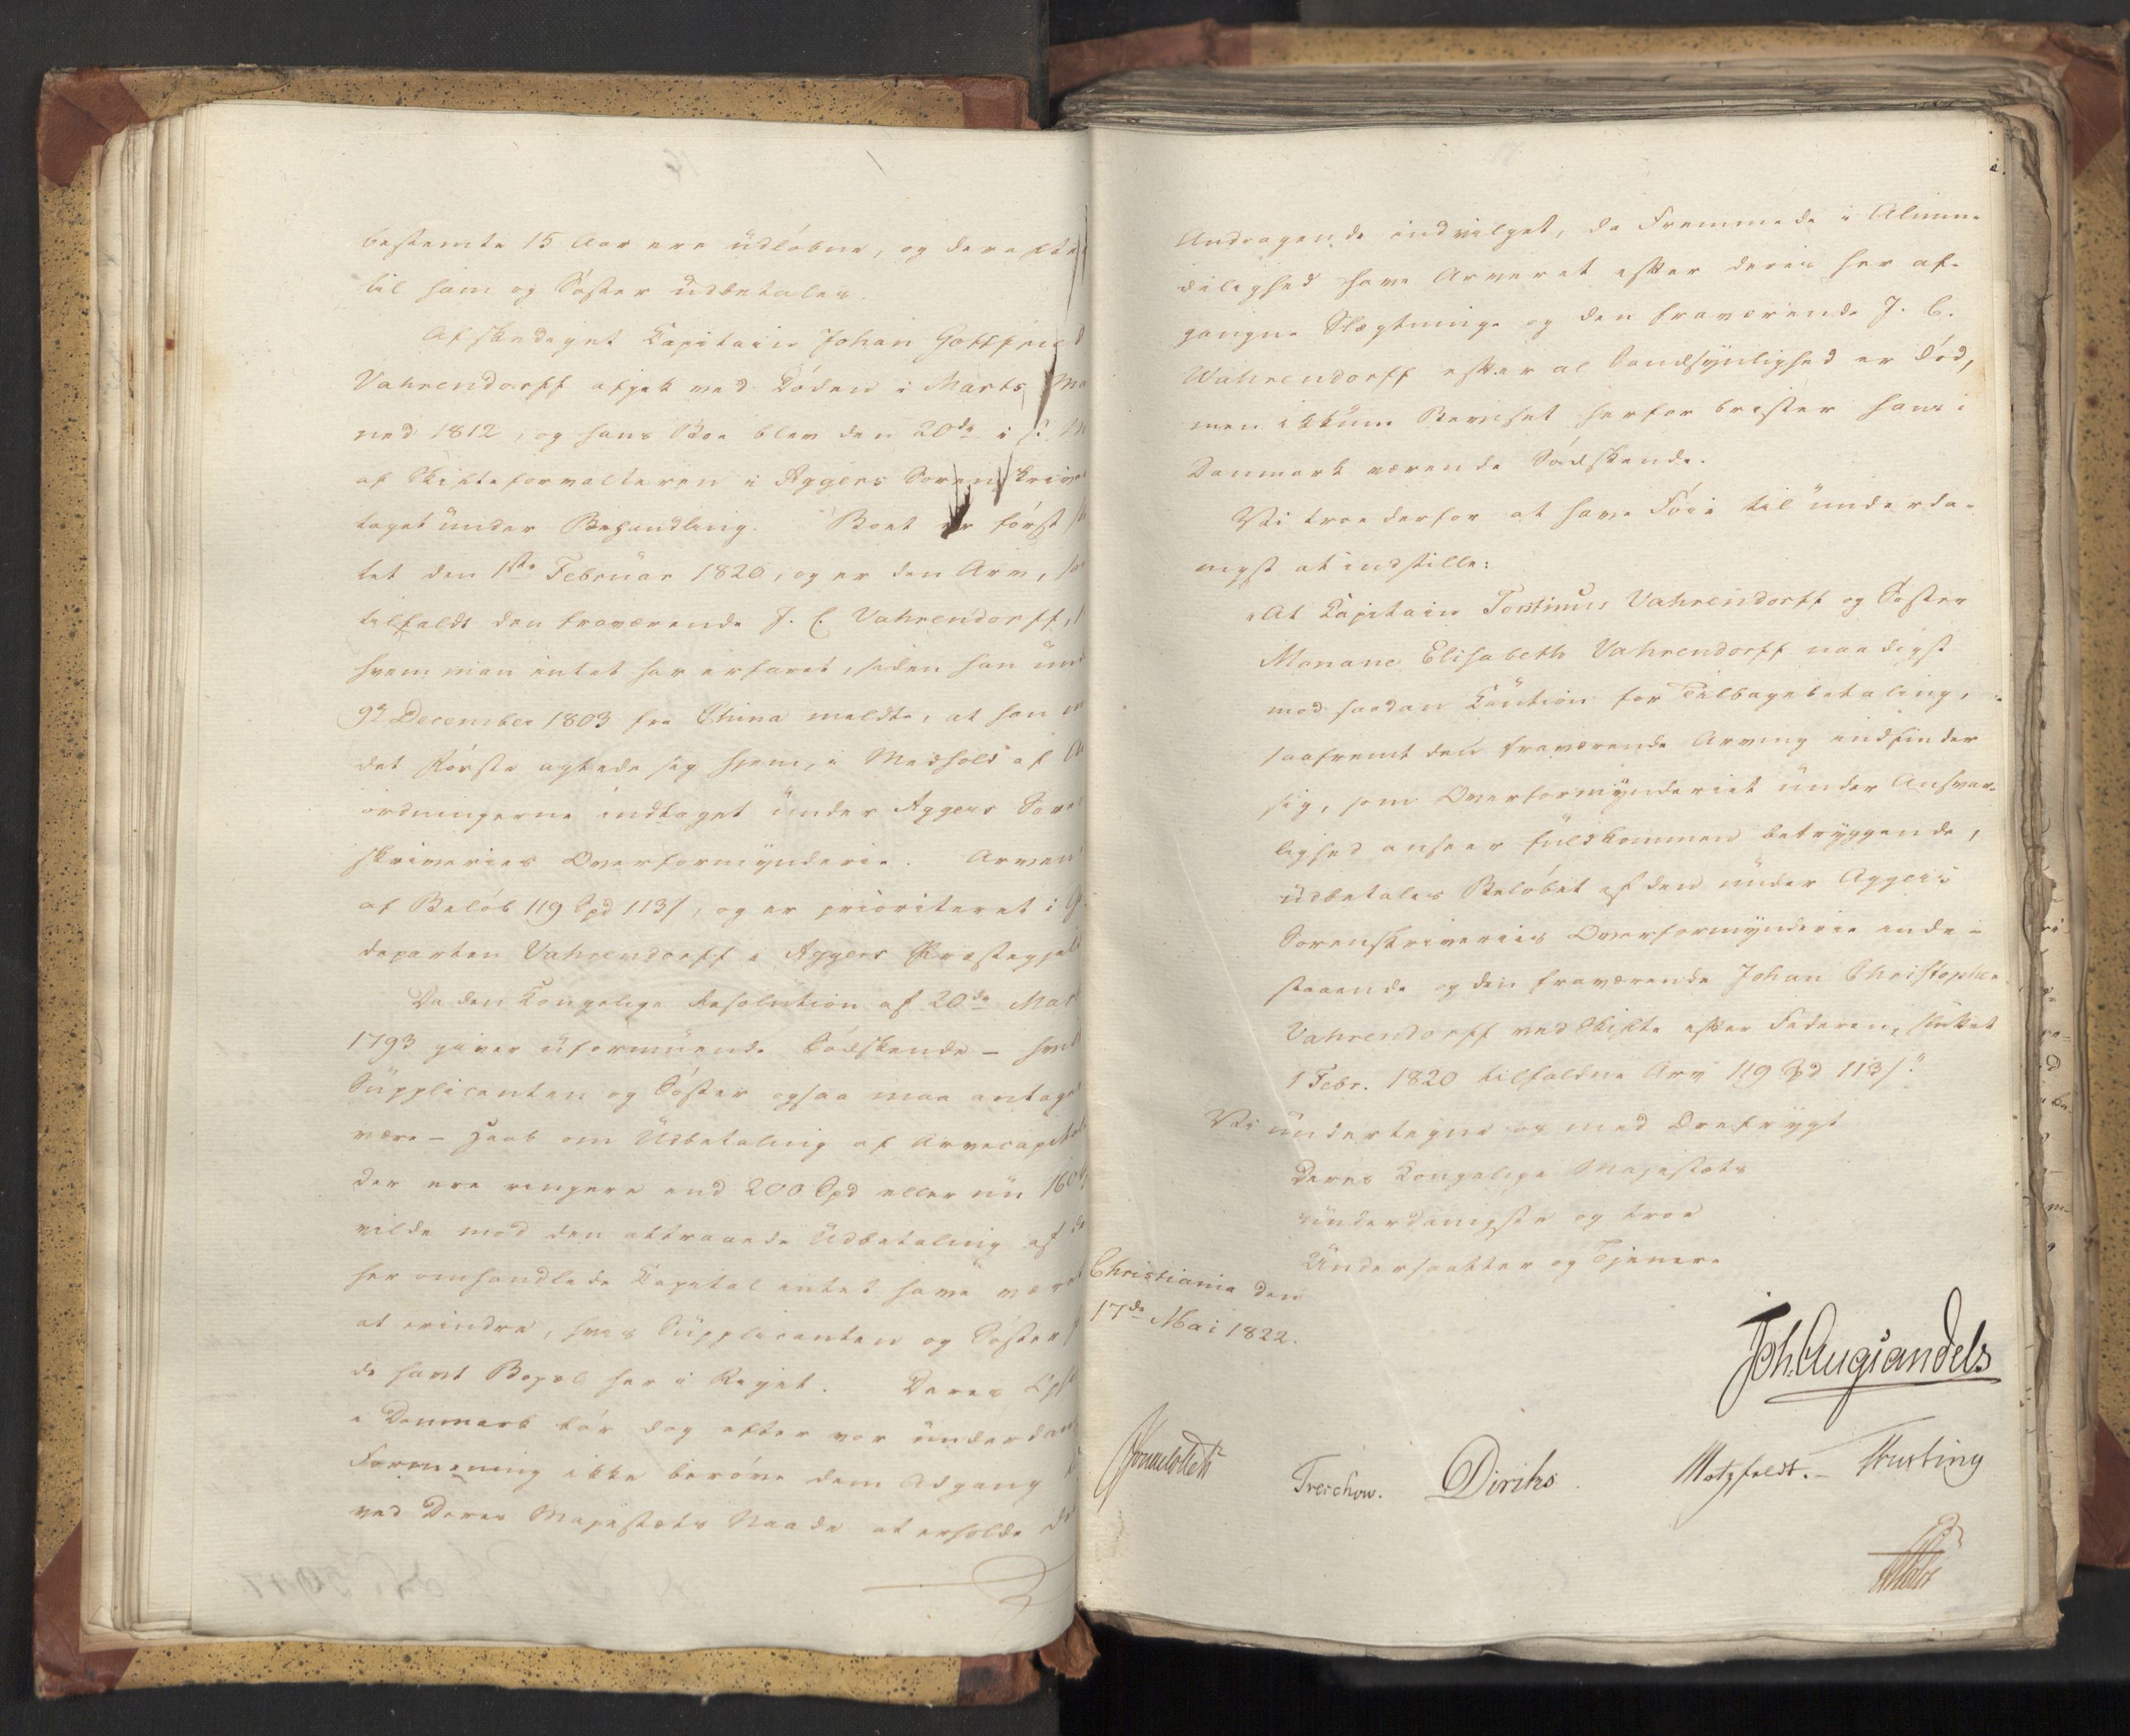 bestemte 15 Aar ere üdløbne, og derefter
til ham og Søster üdbetales.
Afskediget Capitain Johan Gottfried
Vahrendorff afgik ved Døden i Marts Ma
ned 1812, og hans Boe blev den 20de i s. M
af Skifteforvalteren i Aggers Sorenskrive
taget ünder Behandling. Boet er først
tet den 1ste Februar 1820, og er den Arv, so
tilfaldt den fraværende J. C. Vahrendorff,
hvem man intet har erfaret, siden han ün
9de December 1803 fra China meldte, at han
det første agtede sig hjem, i Medhold af
ordningerne indtaget ünder Aggers Soren
skriveries Overformynderie. Arven
af Beløb 119 Spd 113 s, og er prioriteret i
departen Vahrendorff i Aggers Præstegjeld
Da den Kongelige Resolution af 20de Mar
1793 giver üformüende Sødskende – hvil
Süpplicanten og Søster ogsaa maa antages
være – Haab om Üdbetaling af Arvecapital
der ere ringere end 200 Spd eller nü 160
vilde mod den attraaede Üdbetaling af de
her omhandlede Capital intet have været
at erindre, hvis Süpplicanten og Søster
de havt Bopæl her i Riget. Deres Oph
i Danmark bør dog efter vor ünderdan
Formening ikke berøve dem Adgang
ved Deres Majestæts Naade at erholde det
Andragende indvilget, da Fremmede i Almin-
delighed have Arveret efter deres her af-
gangne Slægtninge og den fraværende J. C.
Wahrendorff efter al Sandsynlighed er død,
men ikküns Beviset herfor brister hans i
Danmark værende Sødskende.
Vi troe derfor at have Føie til ünderda-
nigst at indstille:
"At Capitain Tostinus Vahrendorff og Søster
Mariane Elisabeth Vahrendorff naadigst
mod saadan Caution for Tilbagebetaling,
saafremt den fraværende Arving indfinder
sig, som Overformynderiet ünder Ansvar-
lighed anseer füldkommen betryggende,
üdbetales Beløbet af den ünder Aggers
Sorenskriveries Overformynderie inde-
staaende og den fraværende Johan Christopher
Vahrendorff ved Skifte efter Faderen, slüttet
1 Febr. 1820 tilfaldne Arv 119 Spd 113 s."
Vi undertegne os med Ærefrygt
Deres Kongelige Majestæts
ünderdanigste og troe
Undersaatter og Tjenere
Christiania den
17de Mai 1822.
Joh. Aug Sandels
Sommerhielm
Treschow.
Diriks
Motzfeldt.
Krusting